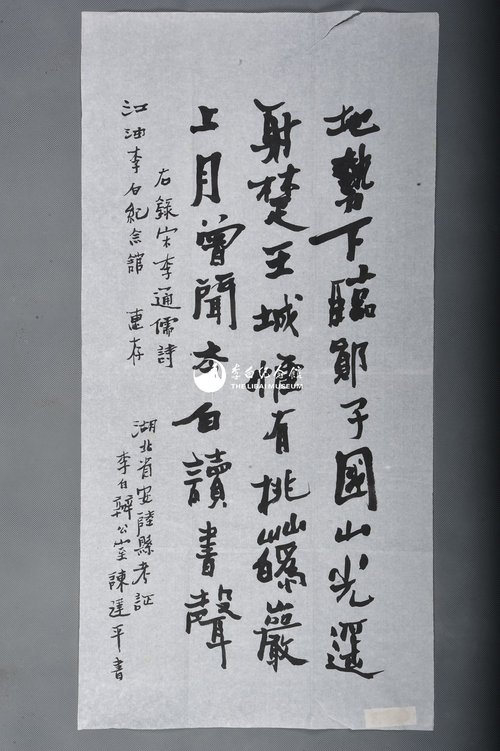 地勢下臨鄖子國山光遥
射楚王城惟有桃蘤巖
上月曾聞太白讀書聲
右錄宋李通儒詩
江油李白紀念館 惠存
湖北省安陸縣考証
李白辦公室陳平書
李白纪念馆
THE LIBAI MUSEUM